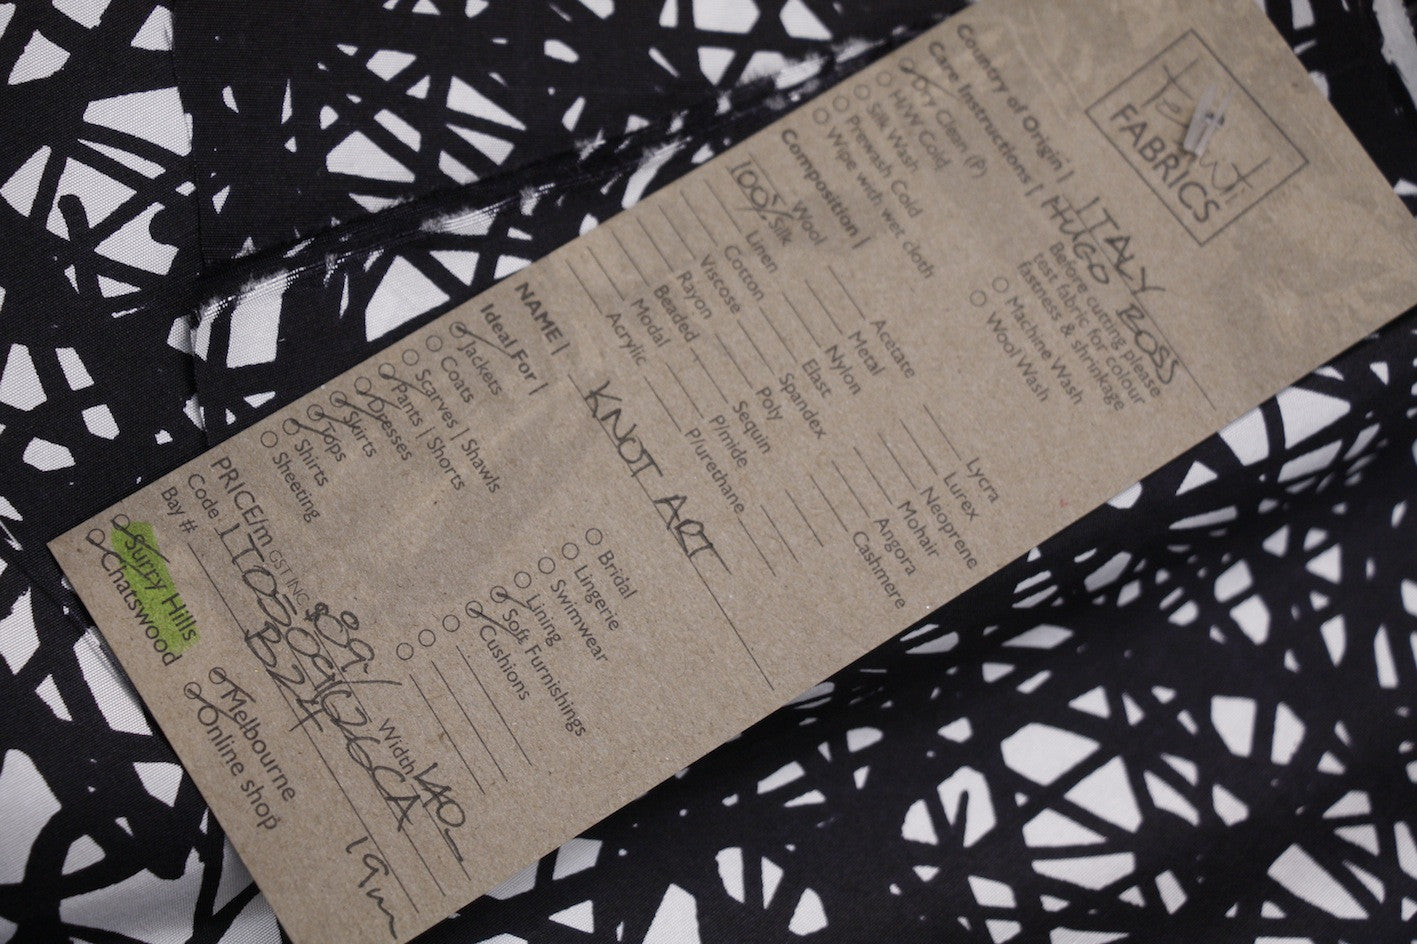 tessuti
FABRICS
Country of Origin | ITALY
Care Instructions | HUGO BOSS
Dry Clean (P)
H/W Cold
Silk Wash
Prewash Cold
Wipe with wet cloth
Before cutting please
test fabric for colour
fastness & shrinkage
Machine Wash
Wool Wash
Composition |
Wool
100% Silk
Linen
Cotton
Viscose
Rayon
Beaded
Modal
Acrylic
Acetate
Metal
Nylon
Elast
Spandex
Poly
Sequin
P/mide
P/urethane
Lycra
Lurex
Neoprene
Mohair
Angora
Cashmere
NAME | KNOT ART
Ideal For |
Jackets
Coats
Scarves | Shawls
Pants | Shorts
Dresses
Skirts
Tops
Shirts
Sheeting
Bridal
Lingerie
Swimwear
Lining
Soft Furnishings
Cushions
PRICE/m GST INC $89/ Width 140
Code
Bay # B24 19m
Surry Hills
Chatswood
Melbourne
Online shop